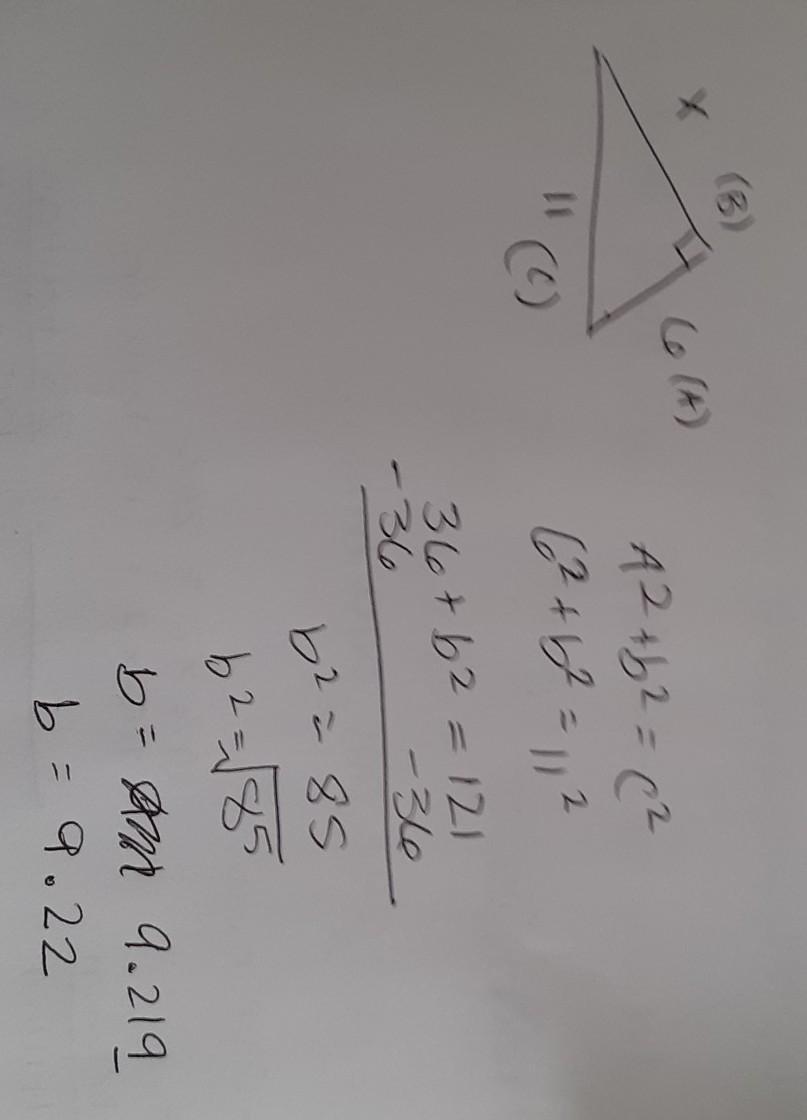 x (B)
6 (A)
11 (C)
A2+b2=C2
6²+b²=11²
36+b2=121
-36 -36
b2=85
b2=√85
b= 9.219
b=9.22